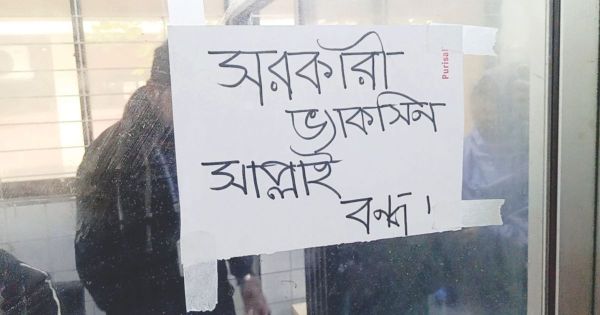 সরকারী
ভ্যাকসিন
সাপ্লাই
বন্ধ।
Purisal